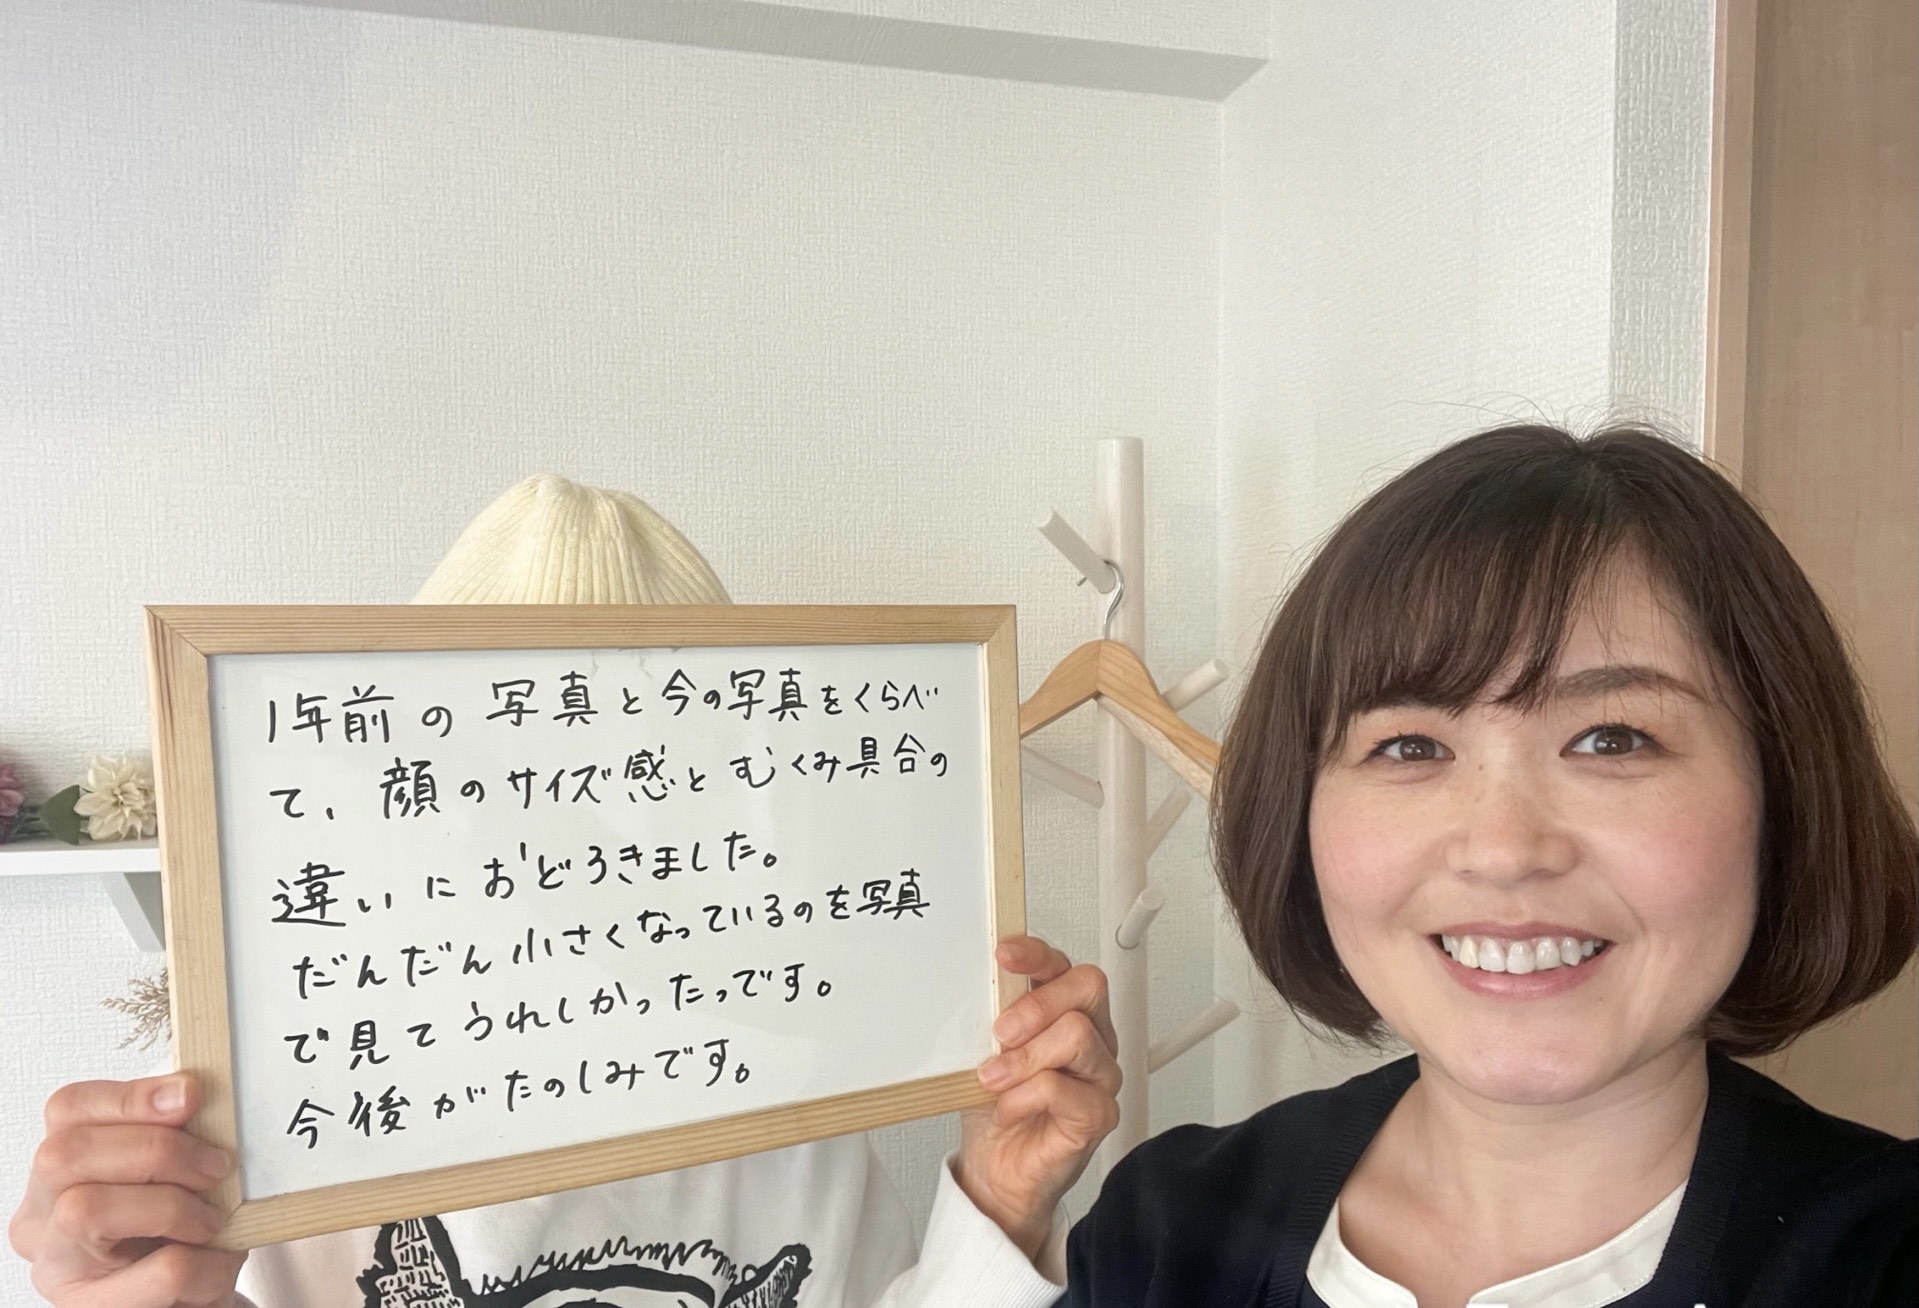 1年前の写真と今の写真をくらべ
て、顔のサイズ感とむくみ具合の
違いにおどろきました。
だんだん小さくなっているのを写真
で見てうれしかったです。
今後がたのしみです。